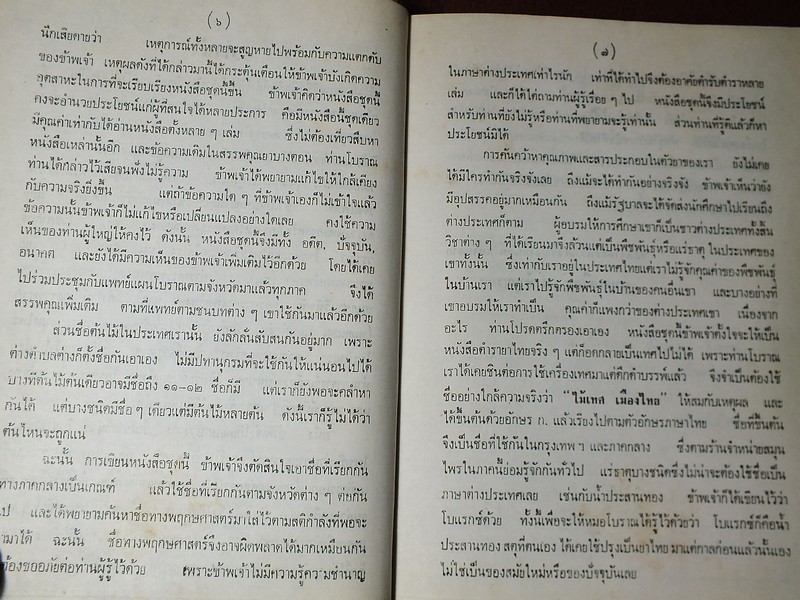 (๖)
นึกเสียดายว่า เหตุการณ์ทั้งหลายจะสูญหายไปพร้อมกับความแตกดับ
ของข้าพเจ้า เหตุผลดังที่ได้กล่าวมานี้ได้กระตุ้นเตือนให้ข้าพเจ้าบังเกิดความ
อุตสาหะในการที่จะเรียบเรียงหนังสือชุดนี้ขึ้น ข้าพเจ้าคิดว่าหนังสือชุดนี้
คงจะอำนวยประโยชน์แก่ผู้ที่สนใจได้หลายประการ คือมีหนังสือนี้ชุดเดียว
มีคุณค่าเท่ากับได้อ่านหนังสือตั้งหลาย ๆ เล่ม ซึ่งไม่ต้องเที่ยวสืบหา
หนังสือเหล่านั้นอีก และข้อความเดิมในสรรพคุณยาบางตอน ท่านโบราณ
ท่านได้กล่าวไว้เสียจนฟังไม่รู้ความ ข้าพเจ้าได้พยายามแก้ไขให้ใกล้เคียง
กับความจริงยิ่งขึ้น แต่ถ้าข้อความใด ๆ ที่ข้าพเจ้าเองก็ไม่เข้าใจแล้ว
ข้อความนั้นข้าพเจ้าก็ไม่แก้ไขหรือเปลี่ยนแปลงอย่างใดเลย คงใช้ความ
เห็นของท่านผู้ใหญ่ให้คงไว้ ดังนั้น หนังสือชุดนี้จึงมีทั้ง อดีต, ปัจจุบัน,
อนาคต และยังได้มีความเห็นของข้าพเจ้าเพิ่มเติมไว้อีกด้วย โดยได้เคย
ไปร่วมประชุมกับแพทย์แผนโบราณตามจังหวัดมาแล้วทุกภาค จึงได้
สรรพคุณเพิ่มเติม ตามที่แพทย์ตามชนบทต่าง ๆ เขาใช้กันมาแล้วอีกด้วย
ส่วนชื่อต้นไม้ในประเทศเรานั้น ยังลักลั่นสับสนกันอยู่มาก เพราะ
ต่างตำบลต่างก็ตั้งชื่อกันเอาเอง ไม่มีปทานุกรมที่จะใช้กันให้แน่นอนไปได้
บางทีต้นไม้ต้นเดียวอาจมีชื่อถึง ๑๑-๑๒ ชื่อก็มี แต่เราก็ยังพอจะคลำหา
กันได้ แต่บางชนิดมีชื่อ ๆ เดียวแต่มีต้นไม้หลายต้น ดังนี้เราก็รู้ไม่ได้ว่า
ต้นไหนจะถูกแน่
ฉะนั้น การเขียนหนังสือชุดนี้ ข้าพเจ้าจึงตัดสินใจเอาชื่อที่เรียกกัน
ทางภาคกลางเป็นเกณฑ์ แล้วใช้ชื่อที่เรียกกันตามจังหวัดต่าง ๆ ต่อกัน
ป และได้พยายามค้นหาชื่อทางพฤกษศาสตร์มาใส่ไว้ตามสติกำลังที่พอจะ
ามาได้ ฉะนั้น ชื่อทางพฤกษศาสตร์จึงอาจผิดพลาดได้มากเหมือนกัน
้องขออภัยต่อท่านผู้รู้ไว้ด้วย เพราะข้าพเจ้าไม่มีความรู้ความชำนาญ
(๗)
ในภาษาต่างประเทศเท่าไรนัก เท่าที่ได้ทำไปจึงต้องอาศัยตำรับตำราหลาย
เล่ม และก็ได้ไต่ถามท่านผู้รู้เรื่อย ๆ ไป หนังสือชุดนี้จึงมีประโยชน์
สำหรับท่านที่ยังไม่รู้หรือท่านที่พยายามจะรู้เท่านั้น ส่วนท่านที่รู้ดีแล้วก็หา
ประโยชน์มิได้
การค้นคว้าหาคุณภาพและสารประกอบในตัวยาของเรา ยังไม่เคย
ได้มีใครทำกันจริงจังเลย ถึงแม้จะได้ทำกันอย่างจริงจัง ข้าพเจ้าเห็นว่ายัง
มีอุปสรรคอยู่มากเหมือนกัน ถึงแม้รัฐบาลจะได้จัดส่งนักศึกษาไปเรียนถึง
ต่างประเทศก็ตาม ผู้อบรมให้การศึกษาเขาก็เป็นชาวต่างประเทศทั้งสิ้น
วิชาต่าง ๆ ที่ได้เรียนมาจึงล้วนแต่เป็นพืชพันธุ์หรือแร่ธาตุ ในประเทศของ
เขาทั้งนั้น ซึ่งเท่ากับเราอยู่ในประเทศไทยแต่เราไม่รู้จักคุณค่าของพืชพันธุ์
ในบ้านเรา แต่เราไปรู้จักพืชพันธุ์ในบ้านของคนอื่นเขา และบางอย่างที่
เขาอบรมให้เราทำเป็น คุณค่าก็แพงกว่าของต่างประเทศเขา เนื่องจาก
อะไร ท่านโปรดตริกตรองเอาเอง หนังสือชุดนี้ข้าพเจ้าตั้งใจจะให้เป็น
หนังสือตำรายาไทยจริง ๆ แต่ก็อดกลายเป็นเทศไปไม่ได้ เพราะท่านโบราณ
เราได้เคยชินต่อการใช้เครื่องเทศมาแต่ดึกดำบรรพ์แล้ว จึงจำเป็นต้องใช้
ชื่ออย่างใกล้ความจริงว่า "ไม้เทศ เมืองไทย" ให้สมกับเหตุผล และ
ได้ขึ้นต้นด้วยอักษร ก. แล้วเรียงไปตามตัวอักษรภาษาไทย ชื่อที่ขึ้นต้น
จึงเป็นชื่อที่ใช้กันในกรุงเทพ ฯ และภาคกลาง ซึ่งตามร้านจำหน่ายสมุน
ไพรในภาคนี้ย่อมรู้จักกันทั่วไป แร่ธาตุบางชนิดซึ่งไม่น่าจะต้องใช้ชื่อเป็น
ภาษาต่างประเทศเลย เช่นกับน้ำประสานทอง ข้าพเจ้าก็ได้เขียนไว้ว่า
โบแรกซ์ด้วย ทั้งนี้เพื่อจะให้หมอโบราณได้รู้ไว้ด้วยว่า โบแรกซ์ก็คือน้ำ
ประสานทอง สตุที่ตนเอง ได้เคยใช้ปรุงเป็นยาไทย มาแต่กาลก่อนแล้วนั้นเอง
ไม่ใช่เป็นของสมัยใหม่หรือของปัจจุบันเลย